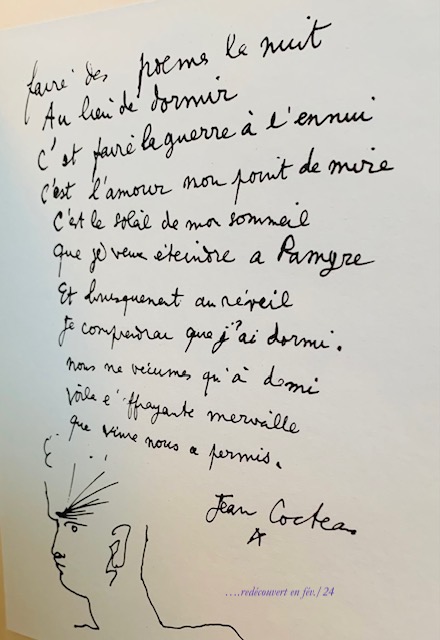 faire des poemes la nuit
Au lieu de dormir
C'et faire la guerre à l'ennui
c'est l'amour mon point de mire
C'est le soleil de mon sommeil
que je veux éteindre a Pamyre
Et brusquement au réveil
Je comprendrai que j'ai dormi.
nous ne vécumes qu'à demi
voila l'effrayante merveille
que vivre nous a permis.
Jean Cocteau
....redécouvert en fév./ 24